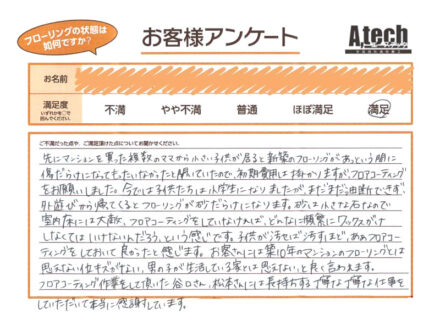 フローリングの状態は
如何ですか?
お客様アンケート
A.tech
お名前
満足度
いずれかを○で
囲んでください。
不満 やや不満 普通 ほぼ満足 満足
ご不満だった点や、ご満足頂けた点についてお聞かせください。
先にマンションを買った複数のママから小さい子供が居ると新築のフローリングがあっという間に
傷だらけになってもったいなかったと聞いていたので、初期費用は掛かりますがフロアコーティング
をお願いしました。今では子供たちは小学生になりましたが、まだまだ油断できず、
外遊びから帰ってくるとフローリングが砂だらけになります。砂は小さな石なので
室内床には大敵、フロアコーティングをしていなければ、どんなに頻繁にワックスがけ
しなくてはいけないんだろう、という感じです。子供が汚せば汚すほど、あのフロアコー
ティングをしておいて良かったと感じます。お客さんには築10年のマンションのフローリングとは
思えない位キズがない、男の子が生活している家とは思えないと良く言われます。
フロアコーティング作業をして頂いた谷口さん、松本さんには長持ちする丁寧な丁寧な仕事を
していただいて本当に感謝しています。